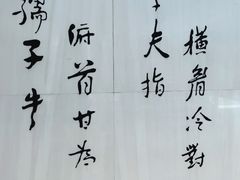 橫眉冷對
夫指
俯首甘為
孺子牛